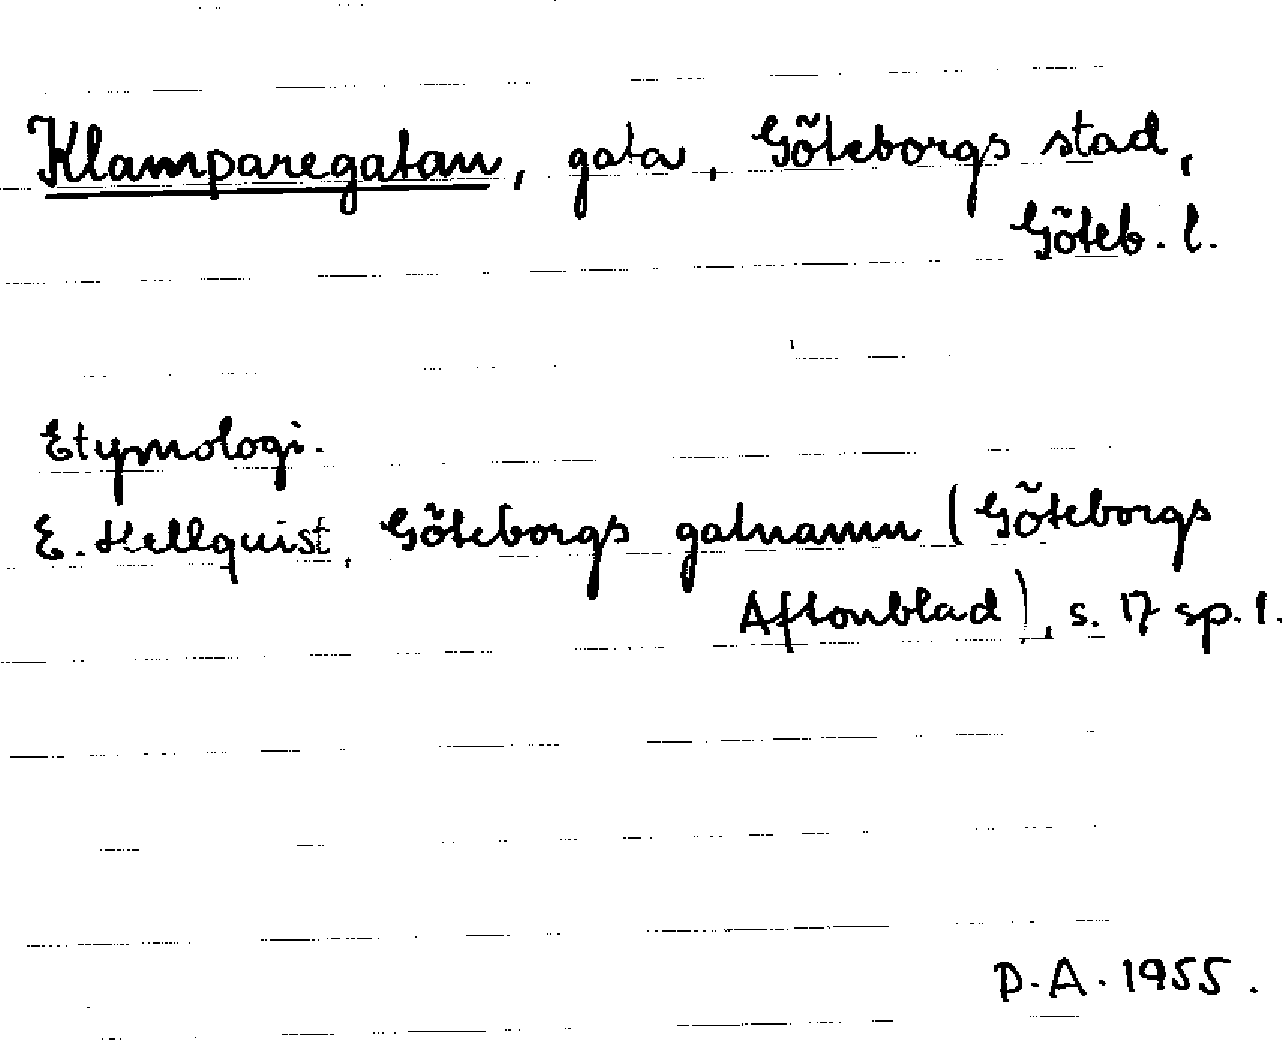 Klamparegatan, gata, Göteborgs stad,
Göteb. l.
Etymologi.
E. Hellquist, Göteborgs gatnamn (Göteborgs
Aftonblad), s. 17 sp. 1.
D.A. 1955.